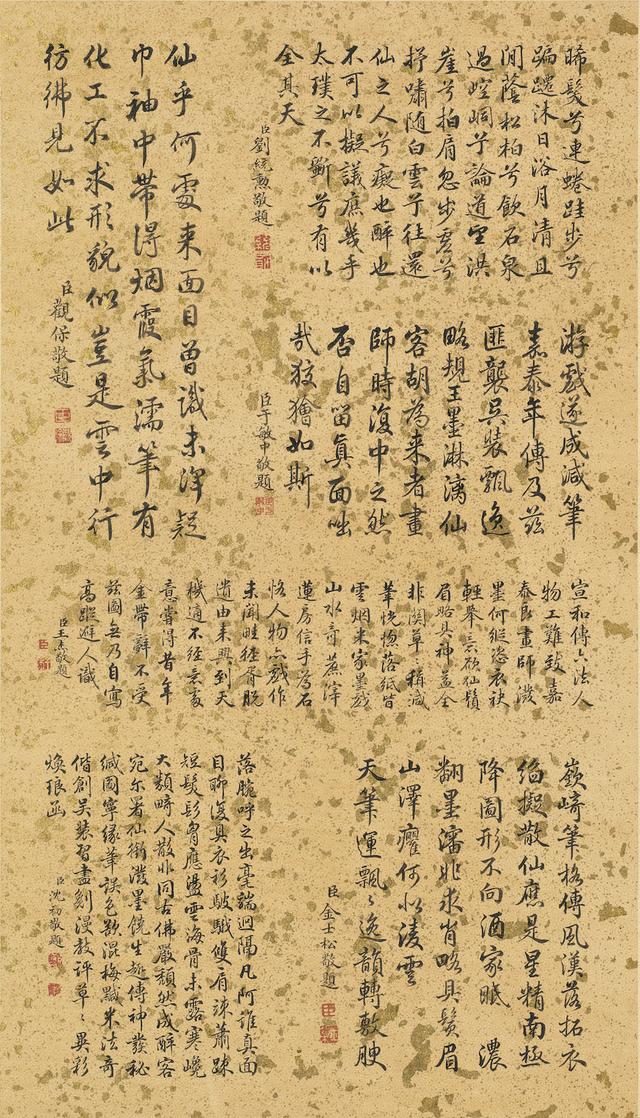 晞髮兮連蜷跬步兮
蹁躚沐日浴月清且
閒蔭松柏兮飲石泉
過崆峒兮論道望洪
崖兮拍肩忽步虛兮
抒嘯隨白雲兮往還
仙之人兮癡也醉也
不可以擬議庶幾乎
太璞之不斲兮有以
全其天
臣劉統勳敬題
仙乎何處來面目曾識未渾疑
巾袖中帶得烟霞氣濡筆有
化工不求形貌似豈是雲中行
彷彿見如此
臣觀保敬題
游戲遂成減筆
嘉泰年傳及茲
匪襲吳裝飄逸
略規王墨淋漓仙
客胡為來者畫
師時復中之然
否自留真面咄
哉狡獪如斯
臣于敏中敬題
宣和傳六法人
物工難致嘉
泰良畫師潑
墨何縱恣衣袂
輕舉意欲仙鬚
眉略具神益全
非關草稱減
筆恍惚落紙皆
雲烟米家墨戲
山水奇蕉滓
蓮房信手為石
恪人物亦戲作
未聞畦徑胥脫
遺由來興到天
機適不經意處
意當得昔年
金帶辭不受
茲圖無乃自寫
高蹤避人識
臣王杰敬題
嶔崎筆格傳風漢落拓衣
袍擬散仙應是星精南極
降圖形不向酒家眠 濃
翻墨瀋非求肖略具鬚眉
山澤癯何以凌雲
天筆運飄飄逸韻轉敷腴
臣金士松敬題
落腕呼之出毫端迥隔凡阿誰真面
目聊復具衣衫皴皺雙肩竦蕭疎
短髮髟胷應盪雲海骨未露寒巉
大類畸人散非同古佛嚴頹然成醉客
宛尔署仙銜潑墨饒生趣傳神發秘
緘國寧緣筆誤色欵混梅黬米法奇
偕創吳裝習盡劖漫教評草草異彩
煥琅函
臣沈初敬題